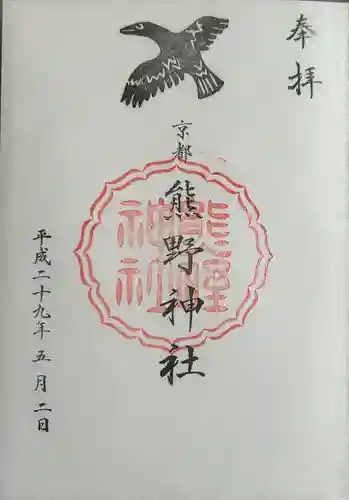 奉拝
京都
熊野神社
平成二十九年五月二日
熊野
神社